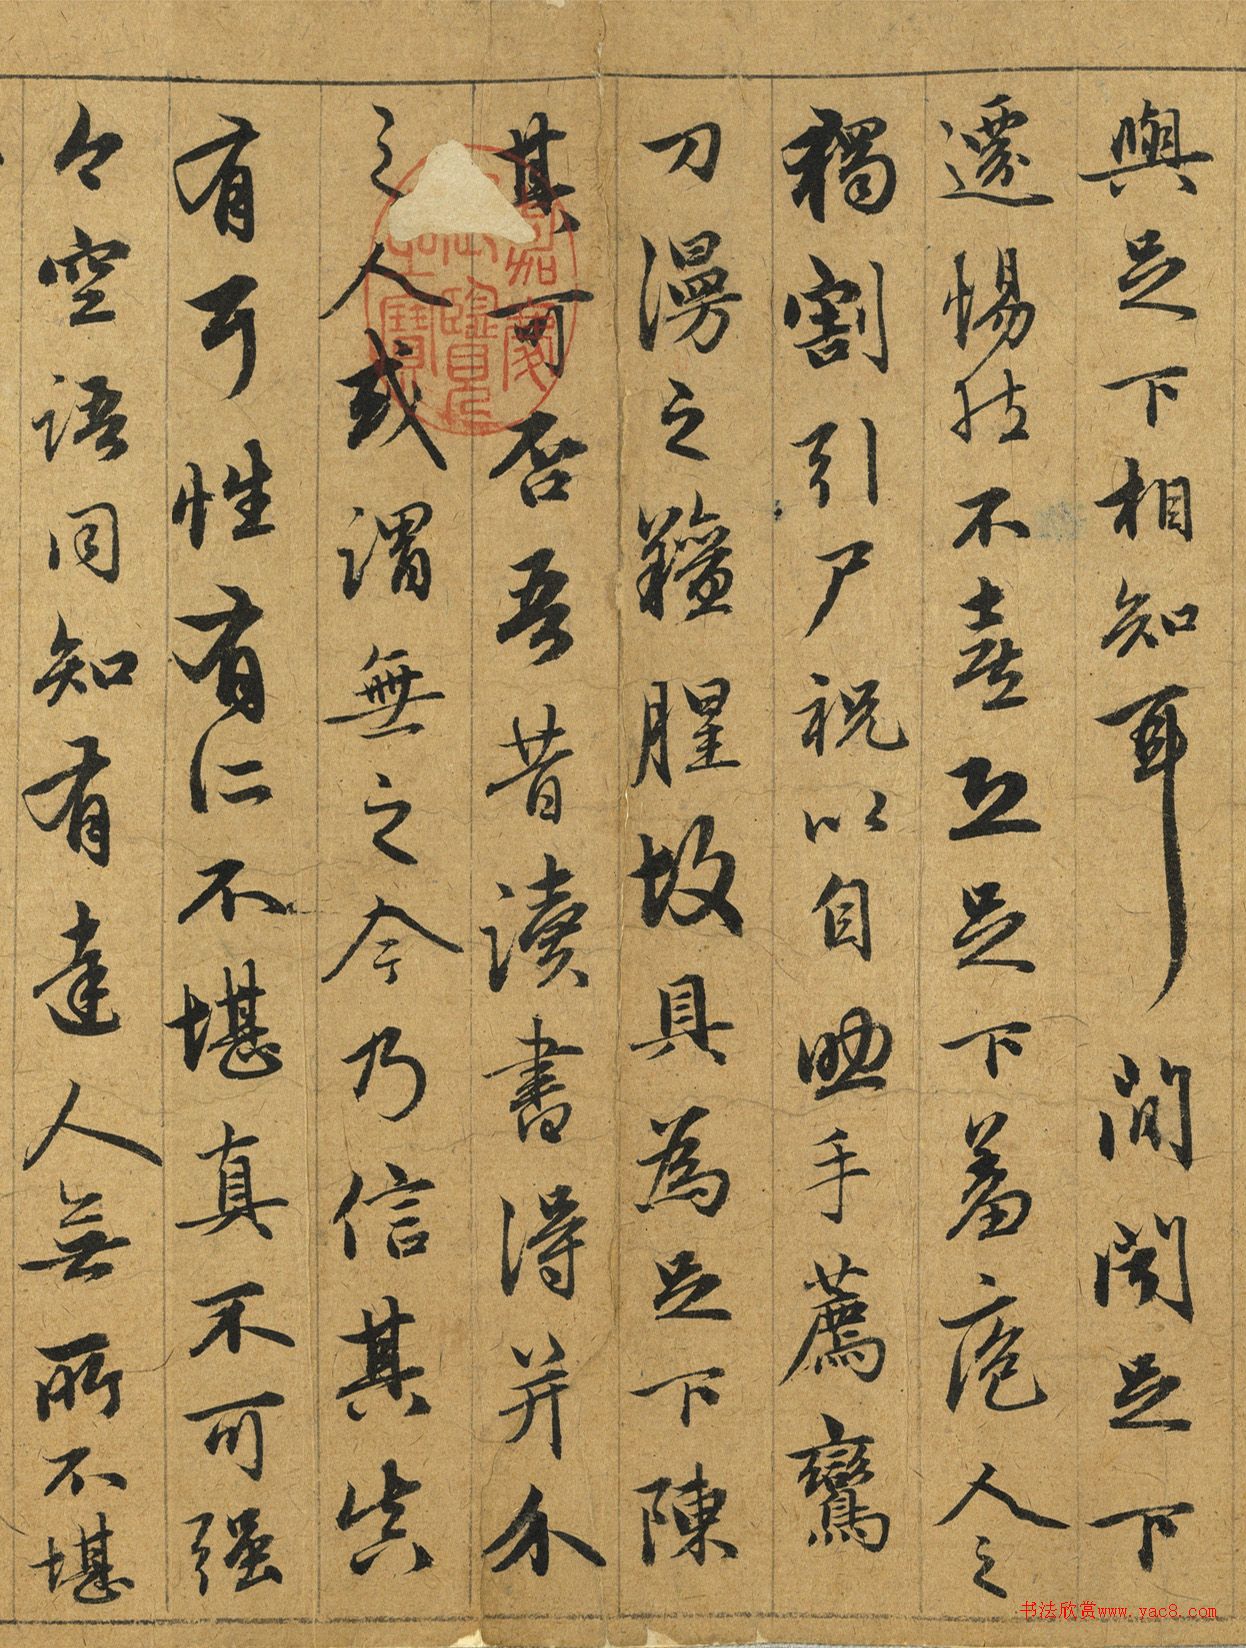 與足下相知耳間聞足下
遷惕然不喜恐足下羞庖人之
獨割引尸祝以自助手薦鸞
刀漫之羶腥故具為足下陳
其可否吾昔讀書得并介
之人或謂無之今乃信其真
有耳性有仁不堪真不可強
今空語同知有達人無所不堪
嘉慶御覽之寶
书法欣赏www.yac8.com